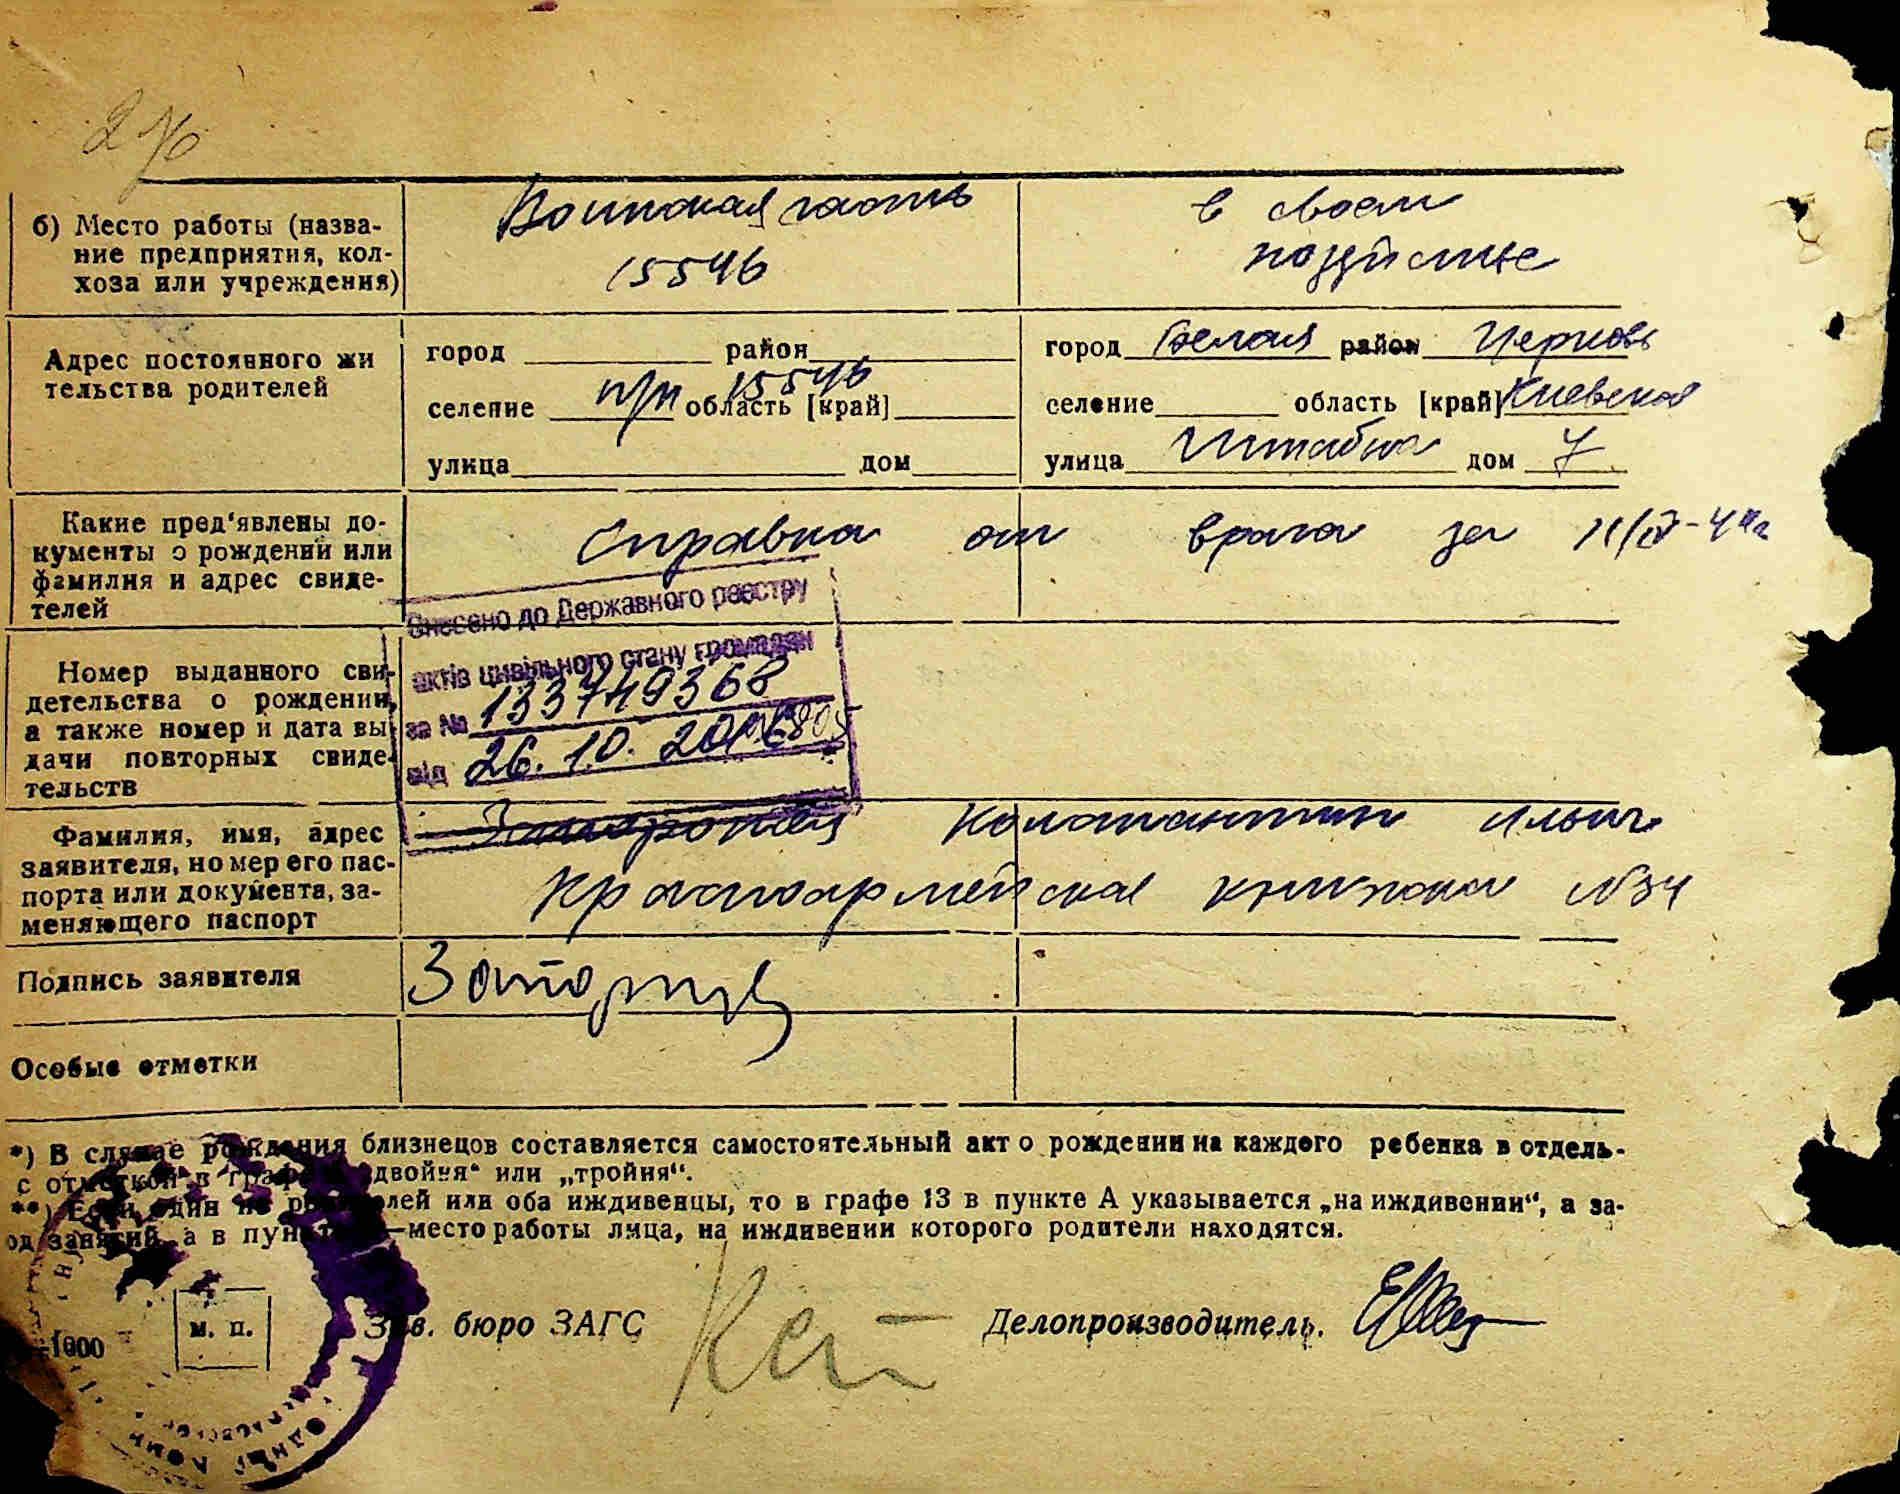 б) Место работы (назва-
ние предприятия, кол-
хоза или учреждения)
Воинская часть
15546
в своем
хозяйстве
Адрес постоянного жи
тельства родителей
город район
селение п/п 15546 область [край]
улица дом
город Белая район Церковь
селение область [край] Киевская
улица Штабна дом 7
Какие пред‘явлены до-
кументы о рождении или
фамилия и адрес свиде-
телей
Справка от врача за
Внесено до Державного реєстру
актів цивільного стану громадян
за № 133749368
від 26.10.20
Номер выданного сви-
детельства о рождении,
а также номер и дата вы-
дачи повторных свиде-
тельств
Фамилия, имя, адрес
заявителя, номер его пас-
порта или документа, за-
меняющего паспорт
Константин Ильич
Красноармейская книжка №34
Подпись заявителя
Особые отметки
*) В случае рождения близнецов составляется самостоятельный акт о рождении на каждого ребенка в отдель-
с отметкой в графе „двойня“ или „тройня“.
**) Если один из родителей или оба иждивенцы, то в графе 13 в пункте А указывается „на иждивении“, а за-
од занятий, а в пункте —место работы лица, на иждивении которого родители находятся.
м. п.
Зав. бюро ЗАГС
Делопроизводитель.
1000